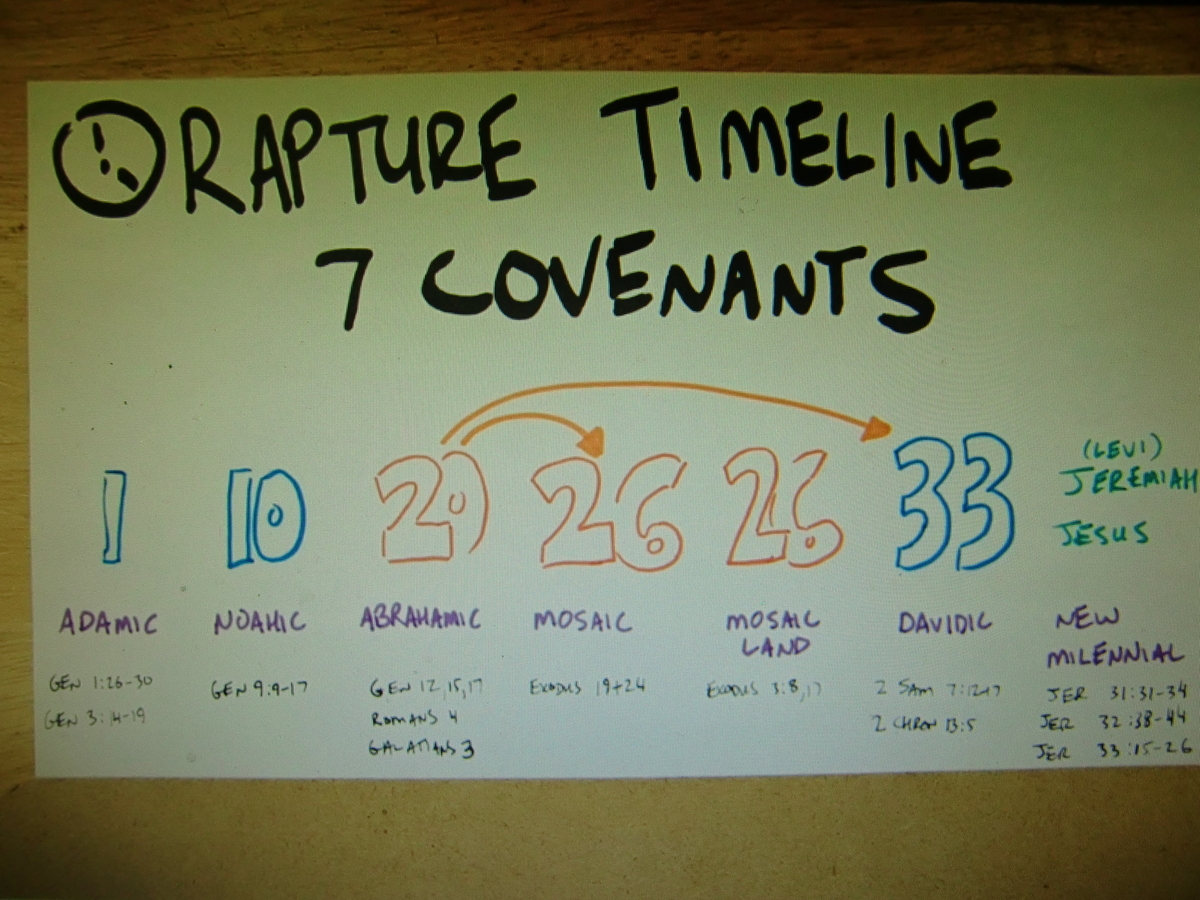 RAPTURE TIMELINE
7 COVENANTS
1 10 20 26 26 33
(LEVI)
JEREMIAH
JESUS
ADAMIC NOAHIC ABRAHAMIC MOSAIC MOSAIC LAND DAVIDIC NEW MILENNIAL
GEN 1:26-30
GEN 3:14-19
GEN 9:9-17
GEN 12,15,17
ROMANS 4
GALATIANS 3
EXODUS 19+24
EXODUS 3:8,17
2 SAM 7:12-17
2 CHRON 13:5
JER 31:31-34
JER 32:38-44
JER 33:15-26